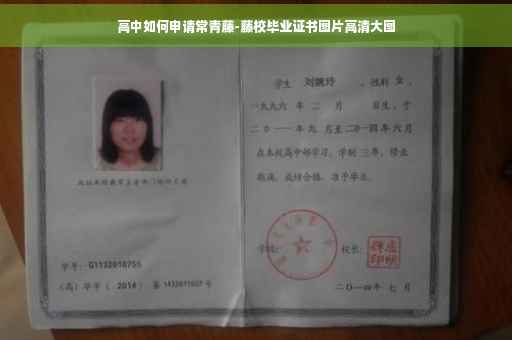 高中如何申请常青藤-藤校毕业证书图片高清大图
学生 刘婉玲 ，性别 女 ，
一九九六 年 二 月 日生，于
二〇一一 年 九 月至 二〇一四 年 六 月
在本校高中部学习，学制 三 年，修业
期满，成绩合格，准予毕业。
学校： 校长：
学号：G1132010755
（高）毕字（ 2014 ）第 1432011007 号
二〇一四 年 七 月